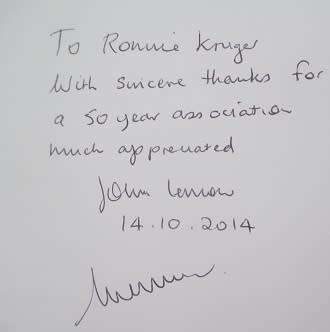 To Ronnie Kruger
With sincere thanks for
a 50 year association
much appreciated
John
14.10.2014